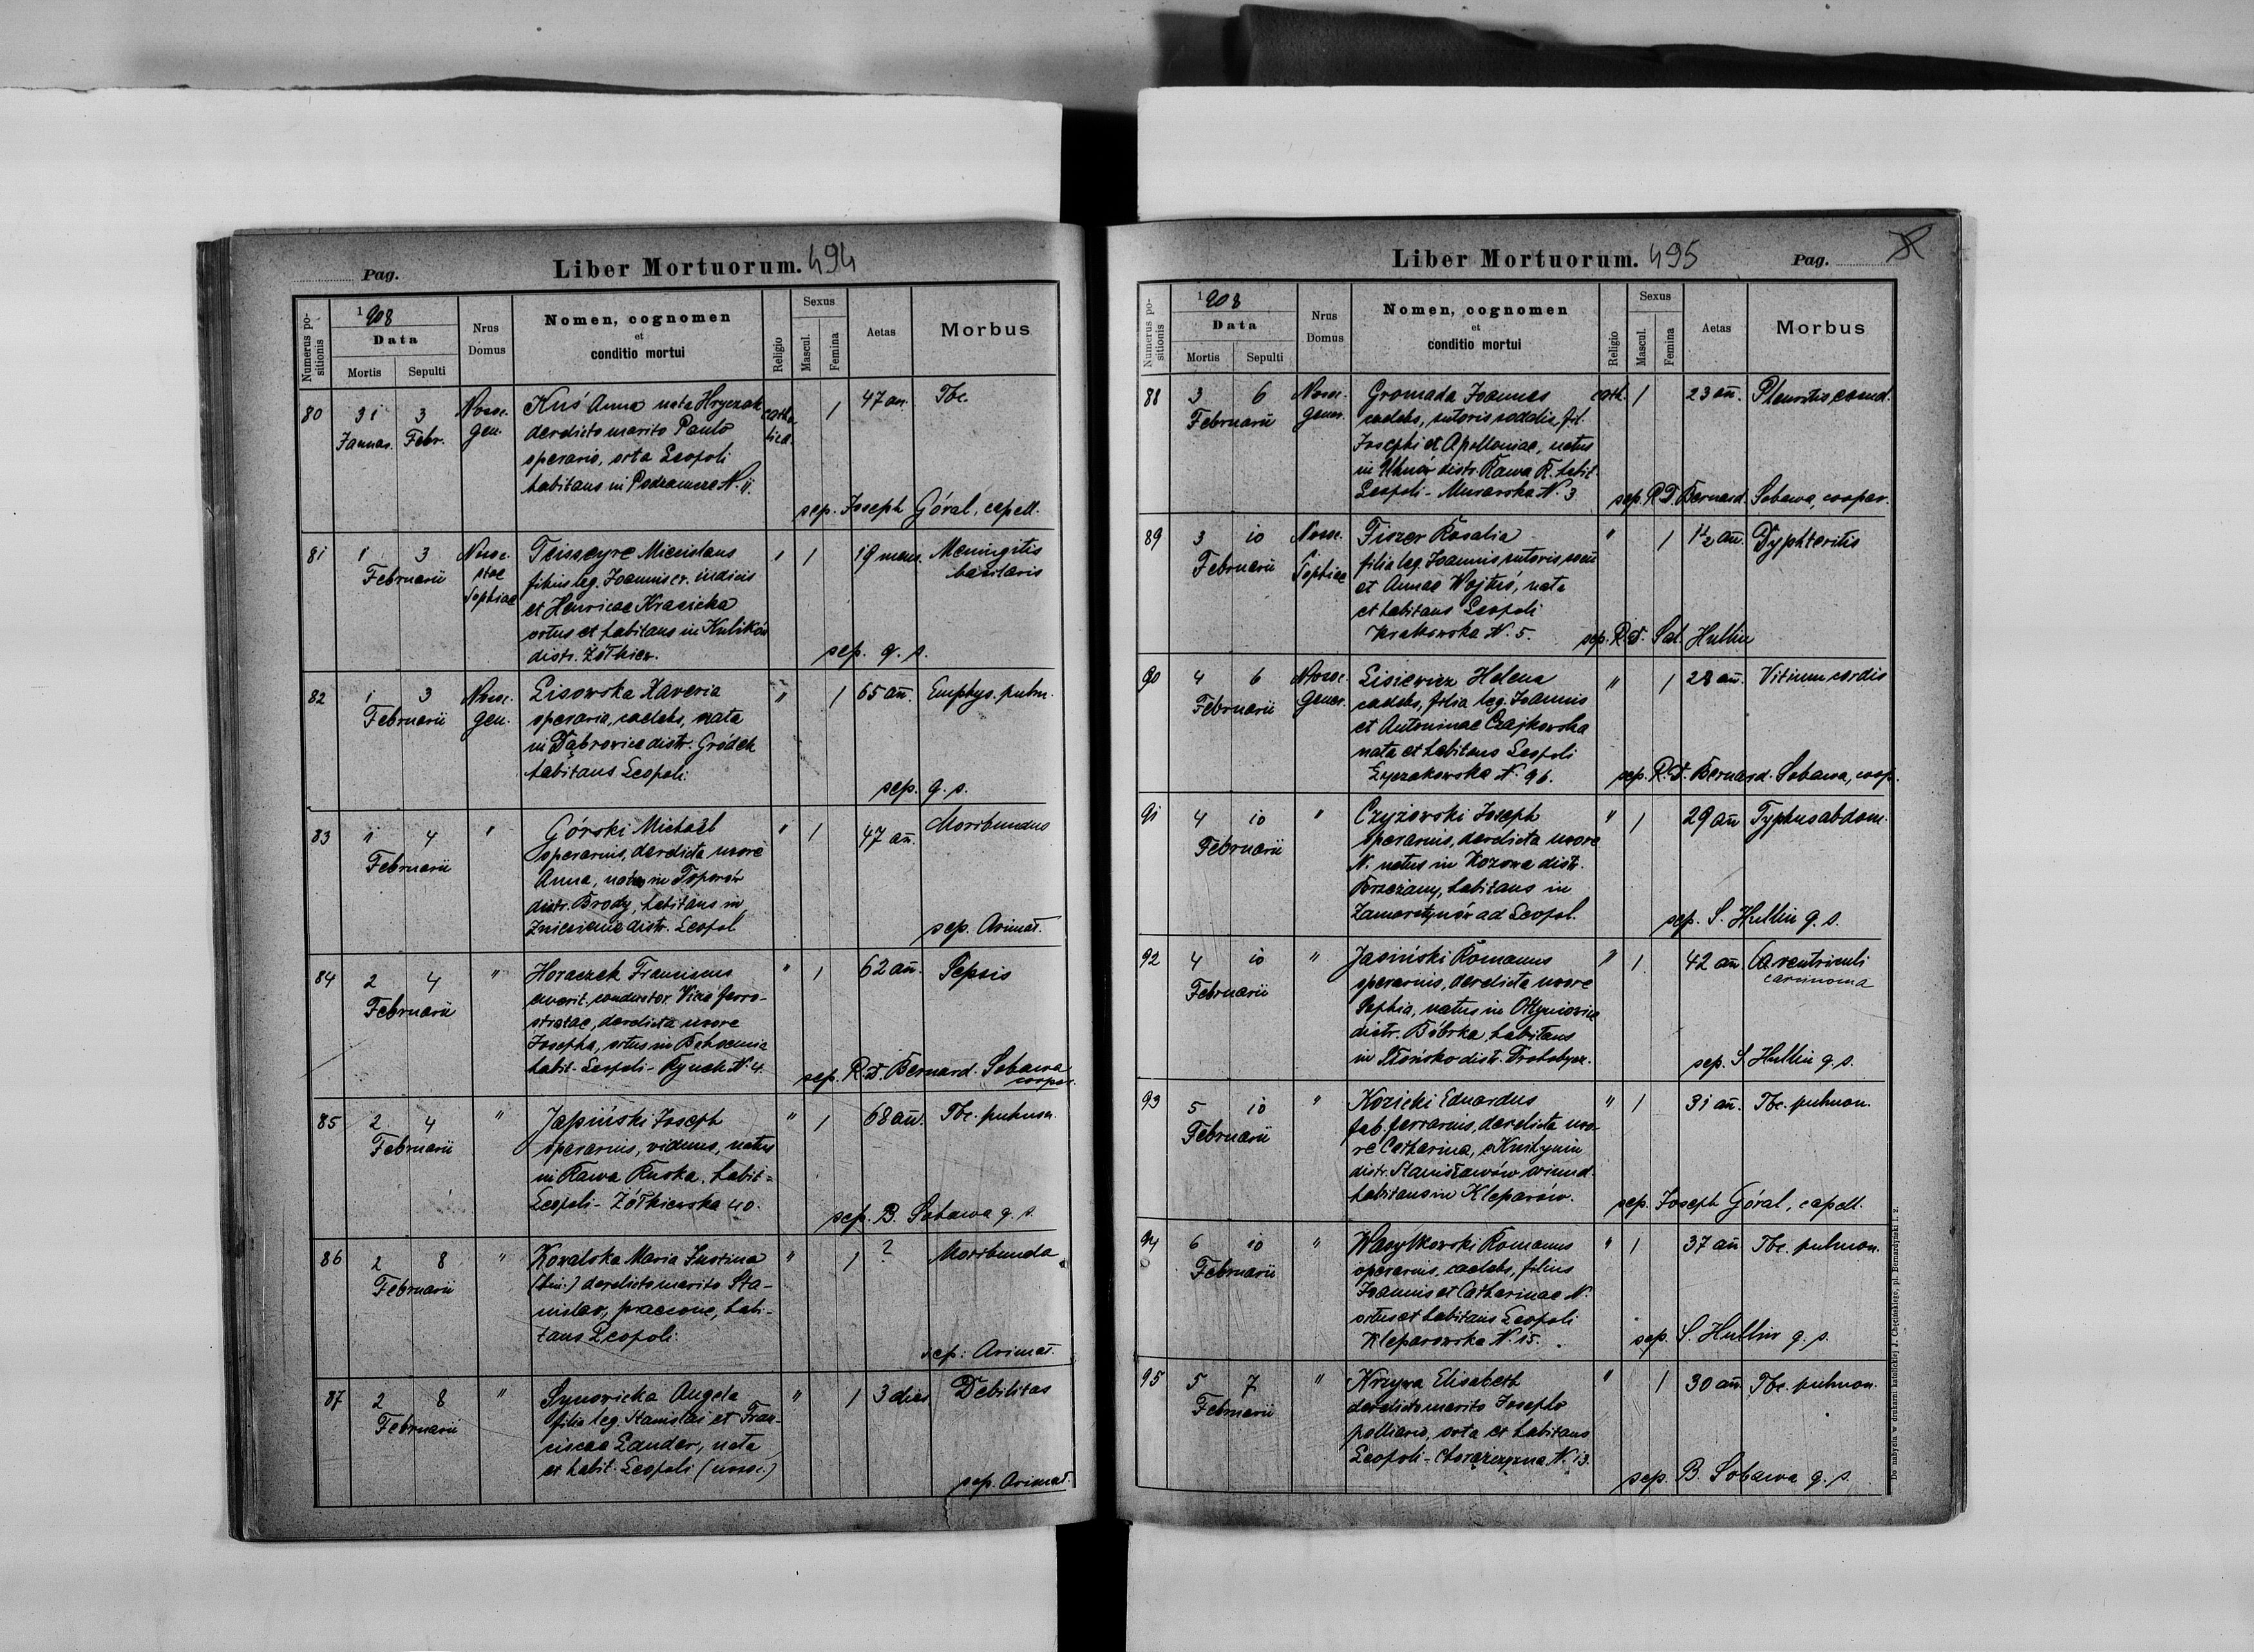 Pag.
Liber Mortuorum. 494
Numerus positionis
1908
Data
Mortis
Sepulti
Nrus Domus
Nomen, cognomen
et
conditio mortui
Religio
Sexus
Mascul.
Femina
Aetas
Morbus
80 31 3 Nosoc. Kuś Anna nata Hryczak catho- 1 47 an. Tbc.
Januar. Febr. gen. derelicto marito Paulo lica
operario, orta Leopoli
habitans in Podzamcze N. 11.
sep. Joseph Góral, capell.
81 1 3 Nosoc. Teisseyre Mieczislaus " 1 19 mens. Meningitis
Februarii stae filius leg. Joannis cr. iudicis basilaris
Sophiae et Henricae Krasicka
ortus et habitans in Kulików
distr. Żółkiew. sep. q. s.
82 1 3 Nosoc. Lisowska Xaveria " 1 65 an̄. Emphys. pulm.
Februarii gen. operaria, caelebs, nata
in Dąbrowica distr. Gródek
habitans Leopoli
sep. q. s.
83 1 4 " Górski Michaël " 1 47 an̄. Moribundus
Februarii operarius, derelicta uxore
Anna, natus in Toporów
distr. Brody, habitans in
Zniesienie distr. Leopol
sep. Arimat.
84 2 4 " Horaczek Franciscus " 1 62 an̄. Sepsis
Februarii emerit. conductor Viae ferro-
stratae, derelicta uxore
Josepha, ortus in Bohoemia
habit. Leopoli - Rynek N. 4.
sep. R. D. Bernard. Sobawa
cooper.
85 2 4 " Japiński Joseph " 1 68 an̄. Tbc. pulmon.
Februarii operarius, viduus, natus
in Rawa Ruska, habit-
Leopoli - Żółkiewska 40.
sep. B. Sobawa q. s.
86 2 8 " Kowalska Maria Justina " 1 ? Moribunda
Februarii (bin.) derelicto marito Sta-
nislao, praecone, habi-
tans Leopoli
sep. Arimat.
87 2 8 " Synowicka Angela " 1 3 dies Debilitas
Februarii filia leg. Stanislai et Fran-
ciscae Lander, nata
et habit. Leopoli (nosoc.)
sep. Arimat.
Liber Mortuorum. 495
Pag.
Numerus positionis
1908
Data
Mortis
Sepulti
Nrus Domus
Nomen, cognomen
et
conditio mortui
Religio
Sexus
Mascul.
Femina
Aetas
Morbus
88 3 6 Nosoc. Gromada Joannes cath. 1 23 an̄. Pleuritis exsud.
Februarii gener. caelebs, sutoris sodalis, fil.
Josephi et Apolloniae, natus
in Uhnów distr. Rawa R. habit.
Leopoli - Murarska N. 3
sep. R. D. Bernard. Sobawa, cooper.
89 3 10 Nosoc. Fiszer Rosalia " 1 1½ an̄. Dyphteritis
Februarii Sophiae filia leg. Joannis sutoris socii
et Annae Wojtuś, nata
et habitans Leopoli
Krakowska N. 5. sep. R. D. Sal. Hullin
90 4 6 Nosoc. Lisiewicz Helena " 1 28 an̄. Vitium cordis
Februarii gener. caelebs, filia leg. Joannis
et Antoninae Czajkowska
nata et habitans Leopoli
Łyczakowska N. 96. sep. R. D. Bernard. Sobawa, coop.
91 4 10 " Czyżowski Joseph " 1 29 an̄ Typhus abdom.
Februarii operarius, derelicta uxore
N. natus in Kozowa distr.
Brzeżany, habitans in
Zamarstynów ad Leopol.
sep. S. Hullin q. s.
92 4 10 " Jasiński Romanus " 1 42 an̄. Carcinoma ventriculi
Februarii operarius, derelicta uxore
Sophia, natus in Ottyniowice
distr. Bóbrka, habitans
in Słońsko distr. Drohobycz.
sep. S. Hullin q. s.
93 5 10 " Kozicki Eduardus " 1 31 an̄. Tbc. pulmon.
Februarii fab. ferrarius, derelicta uxo-
re Catharina, e
distr. Stanisławów oriund.
habitans in Kleparów.
sep. Joseph Góral, capell.
94 6 10 " Wasylkowski Romanus " 1 37 an̄ Tbc. pulmon.
Februarii operarius, caelebs, filius
Joannis et Catharinae N.
ortus et habitans Leopoli
Kleparowska N. 15.
sep. S. Hullin q. s.
95 5 7 " Krzywa Elisabeth " 1 30 an̄ Tbc. pulmon.
Februarii derelicto marito Josepho
pelliario, orta et habitans
Leopoli - Chorążczyzna N. 13.
sep. B. Sobawa q. s.
Do nabycia w drukarni katolickiej J. Chęcińskiego, pl. Bernardyński l. 2.